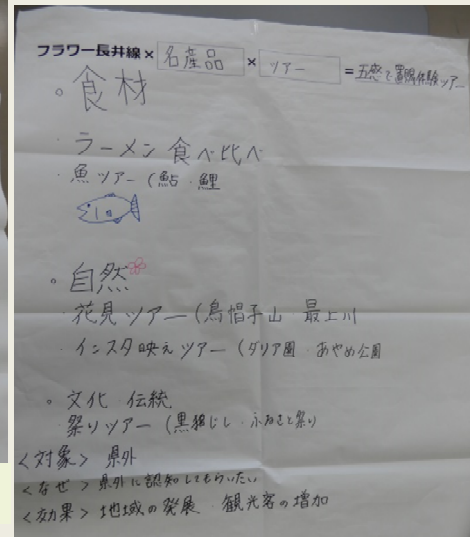 フラワー長井線× 名産品 × ツアー =五感で置賜体験ツアー
。食材
・ラーメン 食べ比べ
・魚ツアー(鮎・鯉
。自然
・花見ツアー(烏帽子山 最上川
・インスタ映えツアー(ダリア園・あやめ公園
。文化・伝統
祭りツアー(黒獅子し・ふるさと祭り
<対象> 県外
<なぜ> 県外に認知してもらいたい
<効果> 地域の発展・観光客の増加